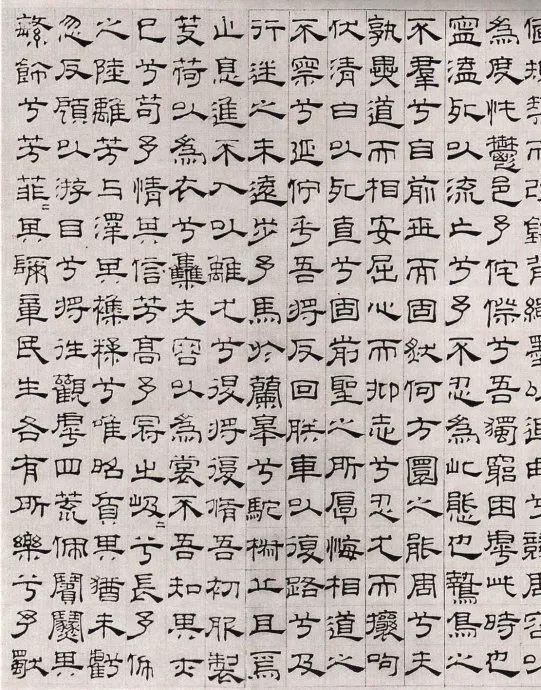 偭規榘而改錯背繩墨以追曲兮競周容以
為度忳鬱邑予侘傺兮吾獨窮困虖此時也
寧溘死以流亡兮予不忍為此態也鷙鳥之
不羣兮自前世而固然何方圜之能周兮夫
孰異道而相安屈心而抑志兮忍尤而攘呴
伏清白以死直兮固前聖之所厚悔相道之
不察兮延佇乎吾將反回朕車以復路兮及
行迷之未遠步予馬於蘭皋兮駝椒丘且焉
止息進不入以離尤兮退將復脩吾初服製
芰荷以為衣兮雧夫容以為裳不吾知其亦
已兮苟予情其信芳高予冠之岌〻兮長予佩
之陸離芳与澤其襍糅兮唯昭質其猶未虧
忽反顧以游目兮將往觀虖四荒佩繽紛其
繁飾兮芳菲〻其彌章民生各有所樂兮予獨